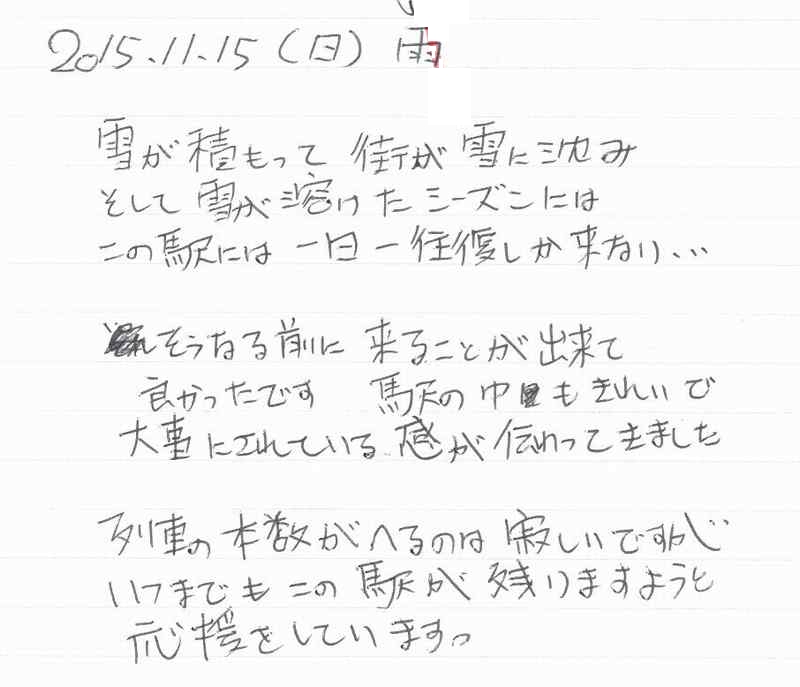 2015.11.15（日）雨
雪が積もって 街が雪に沈み
そして雪が溶けたシーズンには
この駅には一日一往復しか来ない、…
そうなる前に来ることが出来て
良かったです 駅の中もきれいで
大事にされている感が伝わってきました
列車の本数がへるのは寂しいですが
いつまでもこの駅が残りますようと
応援をしていますっ